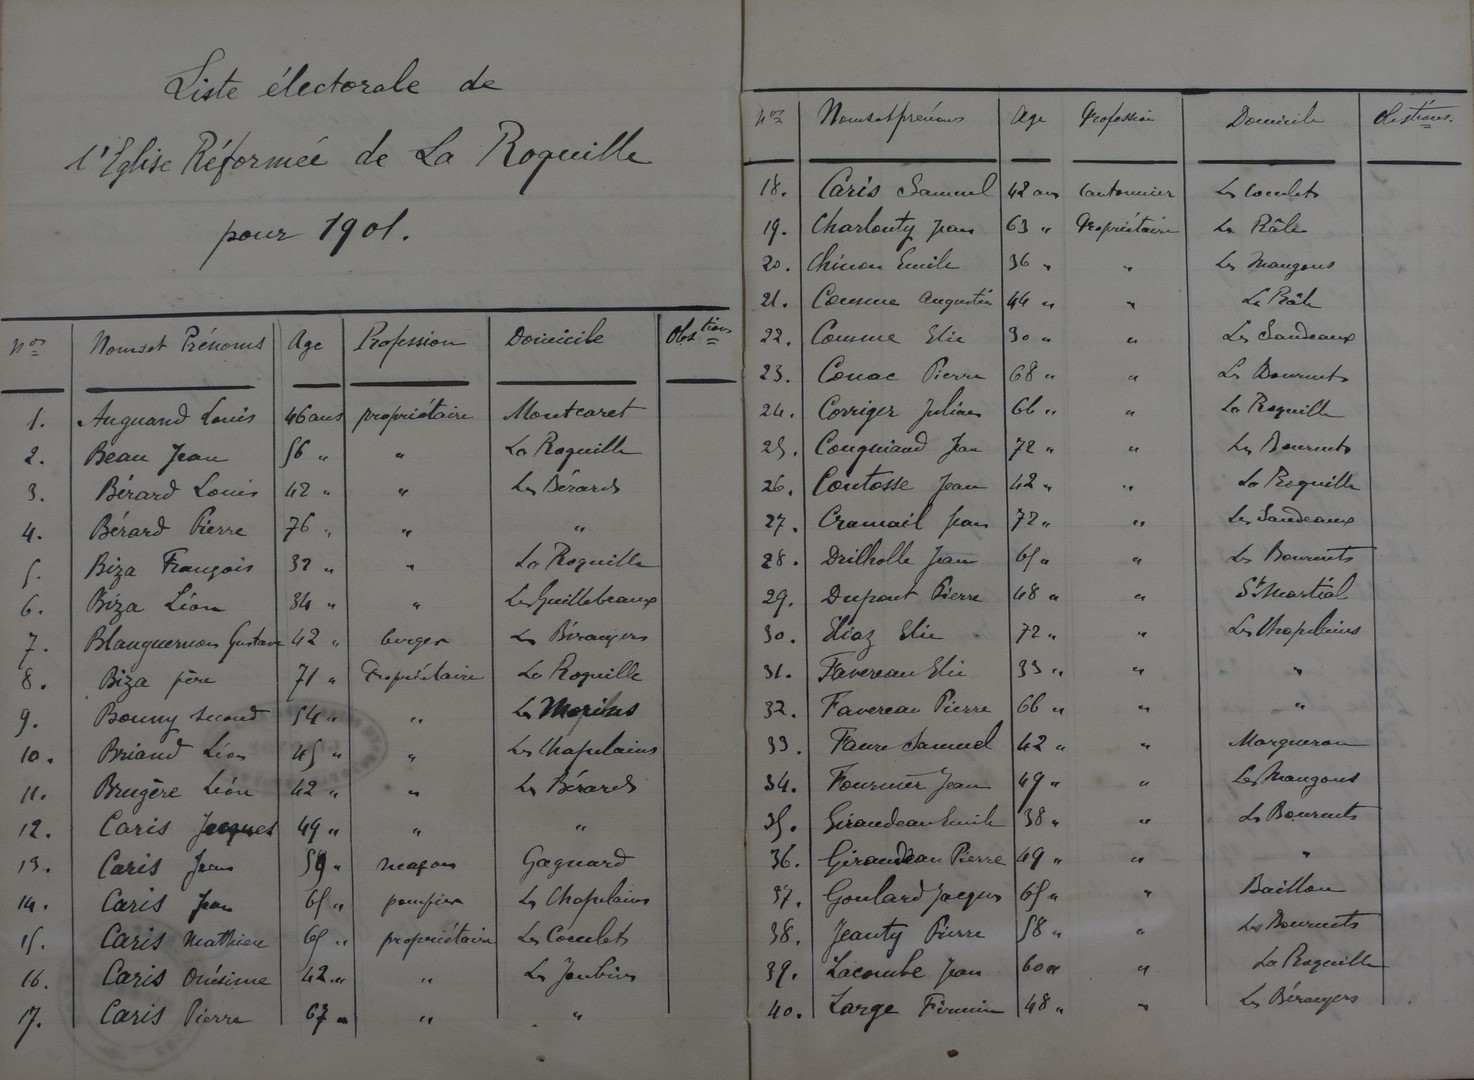 Liste électorale de
l'Eglise Réformée de La Roquille
pour 1901.
Nos Noms et Prénoms Age Profession Domicile Obstions
1. Auguand Louis 46 ans propriétaire Montcaret
2. Beau Jean 56 " " La Roquille
3. Bérard Louis 42 " " Les Bérards
4. Bérard Pierre 76 " " "
5. Biza François 32 " " La Roquille
6. Biza Léon 34 " " Les Guillebeaux
7. Blanguernon Gustave 42 " berger Les Bérangers
8. Biza père 71 " Propriétaire La Roquille
9. Bonny second 54 " " Les
10. Briand Léon 45 " " Les Chapelains
11. Brugère Léon 42 " " Les Bérards
12. Caris Jacques 49 " " "
13. Caris Jean 59 " maçon Gagnard
14. Caris Jean 65 " Les Chapelains
15. Caris Mathieu 65 " propriétaire Les Comlets
16. Caris Onésime 42 " " Les Joubins
17. Caris Pierre 67 " " "
Nos Noms et prénoms Age Profession Domicile Obstions.
18. Caris Samuel 42 ans Cantonnier Les Comlets
19. Charlonty Jean 63 " Propriétaire Le Râle
20. Chinon Emile 36 " " Les Mangons
21. Comme Augustin 44 " " Le Râle
22. Comme Elie 30 " " Les Sandeaux
23. Conac Pierre 68 " " Les Bournets
24. Corriger Julien 66 " " La Roquille
25. Cougniaud Jean 72 " " Les Bournets
26. Coutosse Jean 42 " " La Roquille
27. Cramail Jean 72 " " Les Sandeaux
28. Drilholle Jean 65 " " Les Bournets
29. Dupont Pierre 48 " " St Martial
30. Eliaz Elie 72 " " Les Chapelains
31. Favereau Elie 33 " " "
32. Favereau Pierre 66 " " "
33. Faure Samuel 42 " " Margueron
34. Fournier Jean 49 " " Les Mangons
35. Giraudeau Emile 38 " " Les Bournets
36. Giraudeau Pierre 49 " " "
37. Goulard Jacques 65 " " Baillon
38. Jeanty Pierre 58 " " Les Bournets
39. Lacombe Jean 60 " " La Roquille
40. Large Firmin 48 " " Les Bérangers